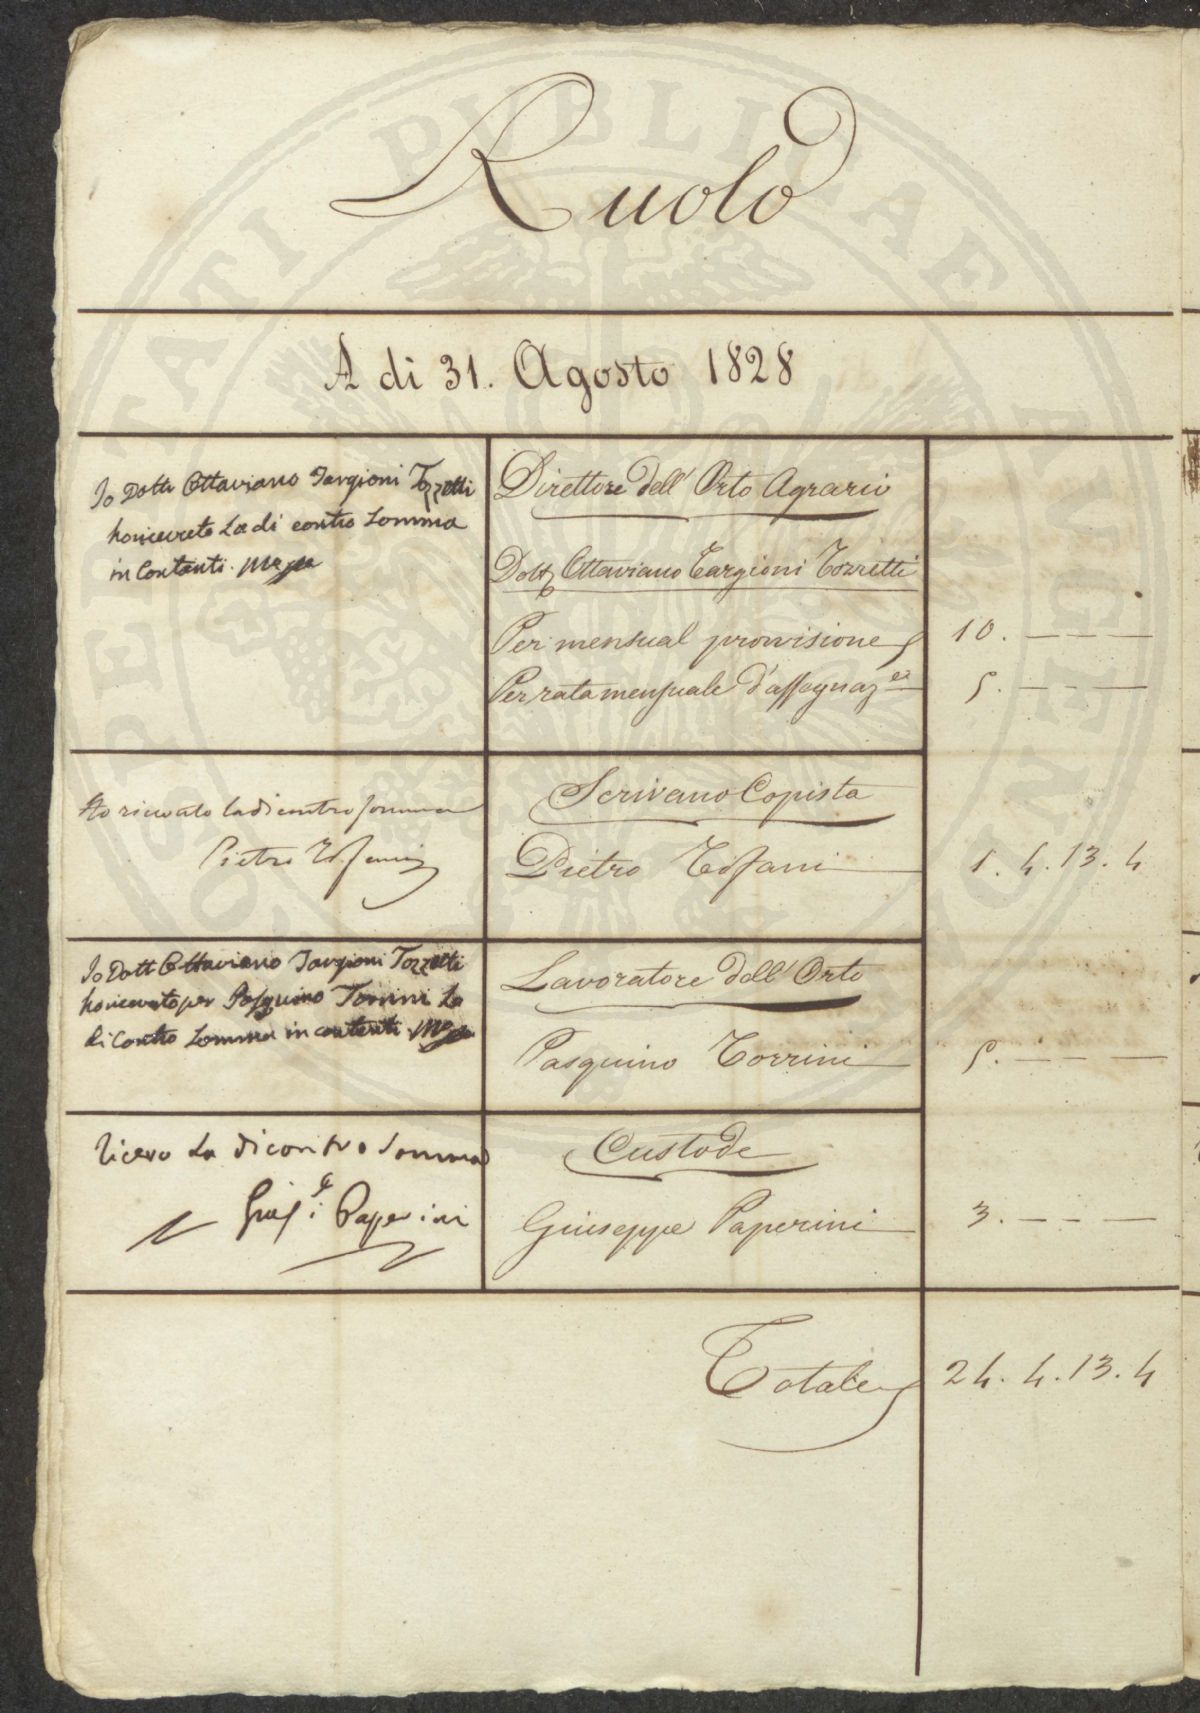 Ruolo
A di 31. Agosto 1828
Io Dott. Ottaviano Targioni Tozzetti
ho ricevuto La di contro Somma
in Contanti.
Direttore dell'Orto Agrario
Dott. Ottaviano Targioni Tozzetti
Per mensual provvisione
10. — — —
Per rata mensuale d'assegnaz.e
5. — — —
Ho ricevuto la di contro somma
Pietro Tofani
Scrivano Copista
Pietro Tofani
1. 4. 13. 4
Io Dott Ottaviano Targioni Tozzetti
ho ricevuto per Pasquino Torrini La
di Contro Somma in contanti
Lavoratore dell'Orto
Pasquino Torrini
5. — — —
Ricevo La di contro Somma
Gius.e Paperini
Custode
Giuseppe Paperini
3. — — —
Totale
24. 4. 13. 4